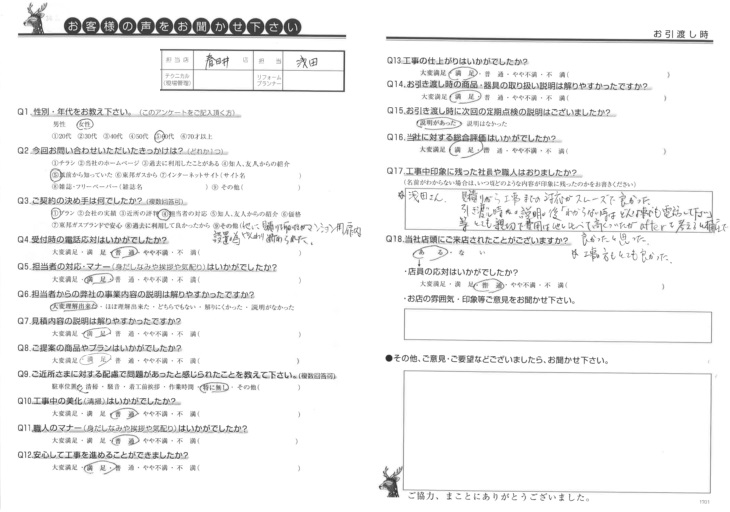 お客様の声をお聞かせ下さい
お引渡し時
担当店 春日井 店 担当 浅田
テクニカル(現場管理) リフォームプランナー
Q1. 性別・年代をお教え下さい。(このアンケートをご記入頂く方)
男性 女性
①20代 ②30代 ③40代 ④50代 ⑤60代 ⑥70才以上
Q2. 今回お問い合わせいただいたきっかけは?(どれか1つ)
①チラシ ②当社のホームページ ③過去に利用したことがある ④知人、友人からの紹介
⑤以前から知っていた ⑥東邦ガスから ⑦インターネットサイト(サイト名 )
⑧雑誌・フリーペーパー(雑誌名 ) ⑨その他( )
Q3. ご契約の決め手は何でしたか?(複数回答可)
①プラン ②会社の実績 ③近所の評判 ④担当者の対応 ⑤知人、友人からの紹介 ⑥価格
⑦東邦ガスブランドで安心 ⑧過去に利用して良かったから ⑨その他(他に、
Q4. 受付時の電話応対はいかがでしたか?
大変満足・満 足・普 通・やや不満・不 満( )
Q5. 担当者の対応・マナー(身だしなみや挨拶や気配り)はいかがでしたか?
大変満足・満 足・普 通・やや不満・不 満( )
Q6. 担当者からの弊社の事業内容の説明は解りやすかったですか?
大変理解出来た・ほぼ理解出来た・どちらでもない・解りにくかった・説明がなかった
Q7. 見積内容の説明は解りやすかったですか?
大変満足・満 足・普 通・やや不満・不 満( )
Q8. ご提案の商品やプランはいかがでしたか?
大変満足・満 足・普 通・やや不満・不 満( )
Q9. ご近所さまに対する配慮で問題があったと感じられたことを教えて下さい。(複数回答可)
駐車位置・清掃・騒音・着工前挨拶・作業時間・特に無し・その他( )
Q10. 工事中の美化(清掃)はいかがでしたか?
大変満足・満 足・普 通・やや不満・不 満( )
Q11. 職人のマナー(身だしなみや挨拶や気配り)はいかがでしたか?
大変満足・満 足・普 通・やや不満・不 満( )
Q12. 安心して工事を進めることができましたか?
大変満足・満 足・普 通・やや不満・不 満( )
Q13. 工事の仕上がりはいかがでしたか?
大変満足・満 足・普 通・やや不満・不 満( )
Q14. お引き渡し時の商品・器具の取り扱い説明は解りやすかったですか?
大変満足・満 足・普 通・やや不満・不 満( )
Q15. お引き渡し時に次回の定期点検の説明はございましたか?
説明があった・説明はなかった
Q16. 当社に対する総合評価はいかがでしたか?
大変満足・満 足・普 通・やや不満・不 満( )
Q17. 工事中印象に残った社員や職人はおりましたか?
(名前がわからない場合は、いつ頃どのような内容が印象に残ったのかをお書きください)
浅田さん 見積りから工事までの対応がスムーズで良かった。
良かったと思った。
Q18. 当社店頭にご来店されたことがございますか?
ある・ない
工事の方もとても良かった。
・店員の応対はいかがでしたか?
大変満足・満 足・普 通・やや不満・不 満( )
・お店の雰囲気・印象等ご意見をお聞かせ下さい。
●その他、ご意見・ご要望などございましたら、お聞かせ下さい。
ご協力、まことにありがとうございました。